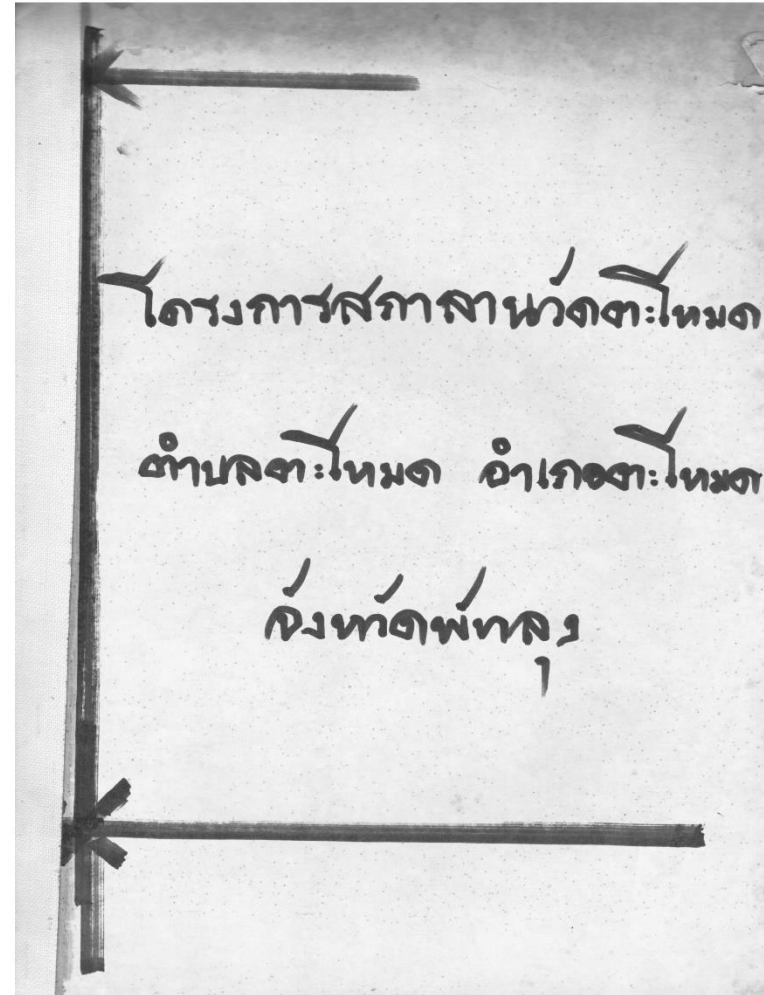 โครงการสภาลานวัดตะโหมด
ตำบลตะโหมด อำเภอตะโหมด
จังหวัดพัทลุง